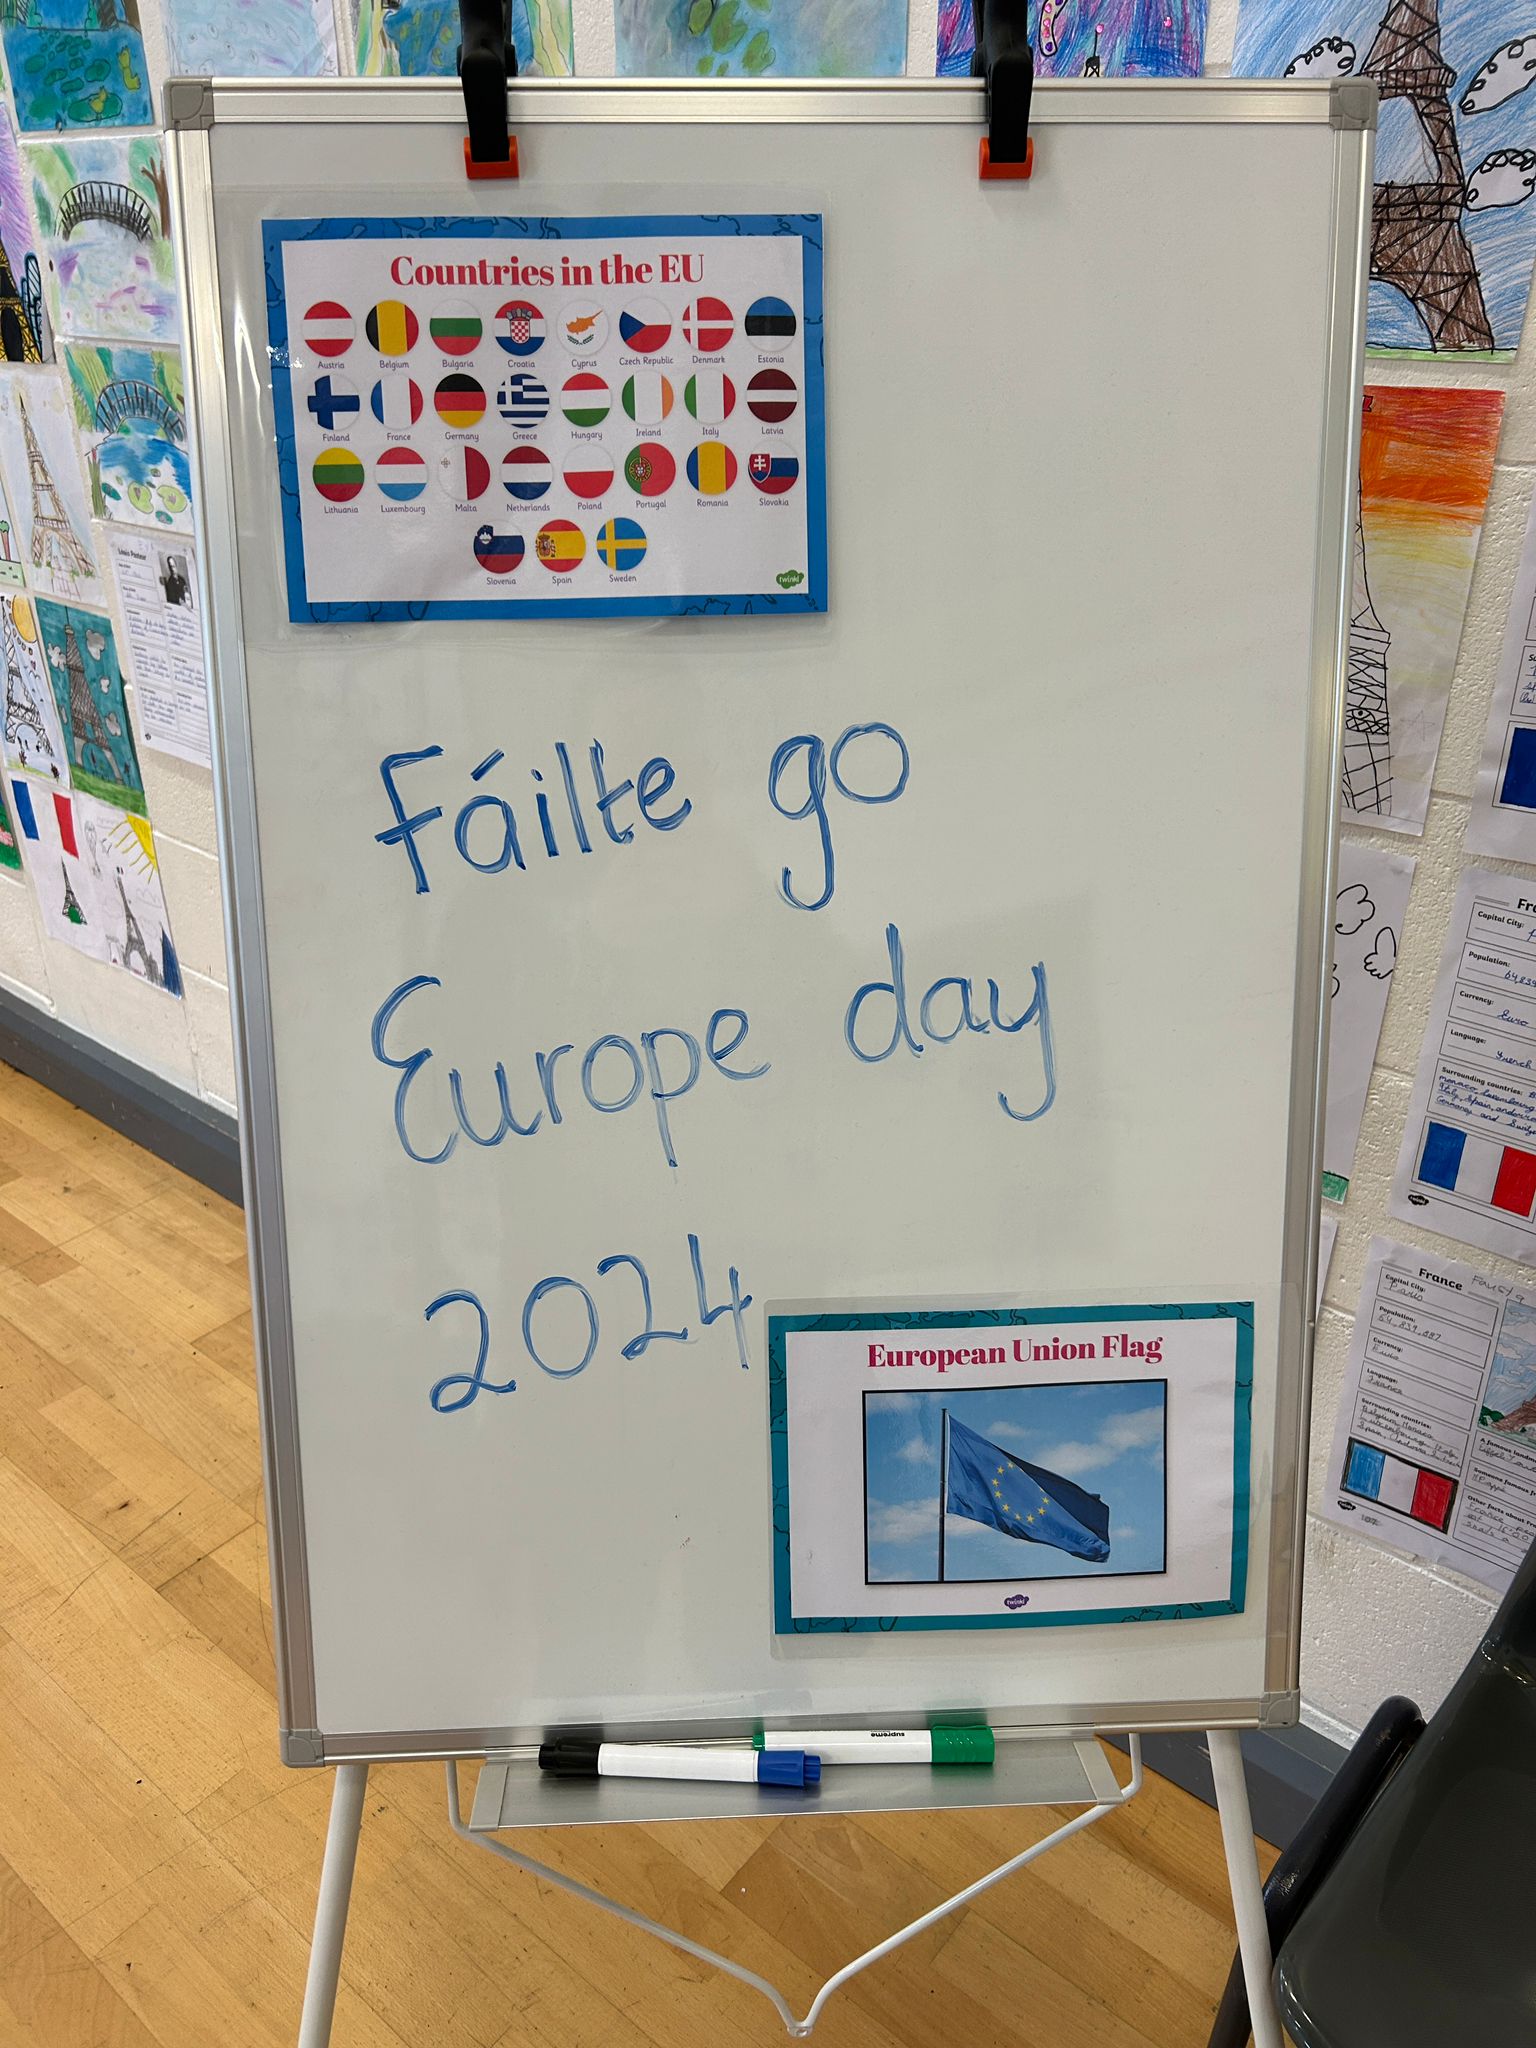 Countries in the EU
Austria Belgium Bulgaria Croatia Cyprus Czech Republic Denmark Estonia
Finland France Germany Greece Hungary Ireland Italy Latvia
Lithuania Luxembourg Malta Netherlands Poland Portugal Romania Slovakia
Slovenia Spain Sweden
twinkl
Fáilte go
Europe day
2024
European Union Flag
twinkl
supreme
Louis Pasteur
Capital City:
Population:
64,839
Currency:
Euro
Language:
French
Surrounding countries:
France
Capital City:
Paris
Population:
Currency:
Euro
Language:
France
Surrounding countries: